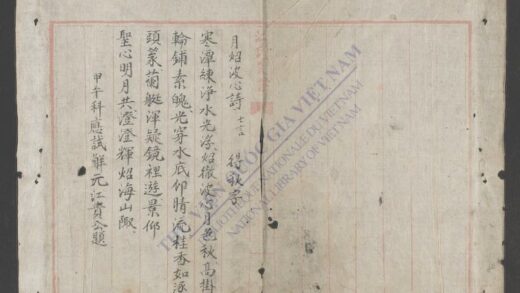 月炤波心詩 七言 得秋字
寒潭練淨水光浮炤徹波心月色秋高掛
輪鋪素魄光穿水底仰晴流桂香如逐
頭艇渾疑鏡裡遊景仰
聖心明月共澄澄輝炤海山陬
甲午科應試解元江公題
THƯ VIỆN QUỐC GIA VIỆT NAM
BIBLIOTHÈQUE NATIONALE DU VIETNAM
NATIONAL LIBRARY OF VIETNAM